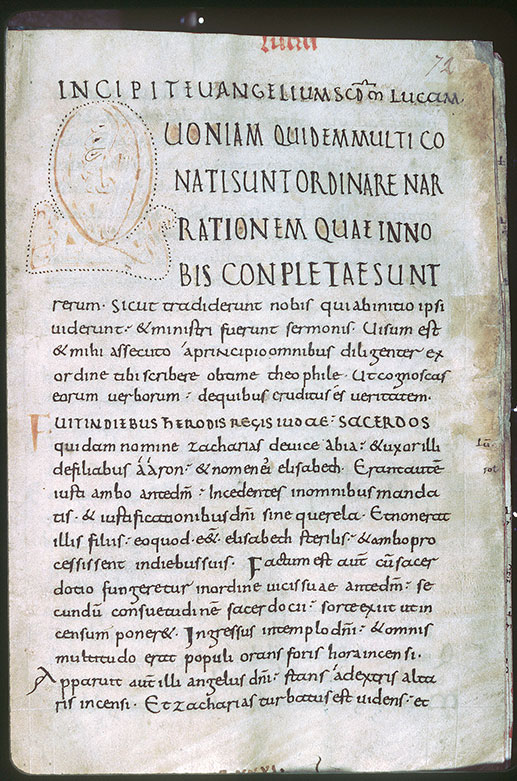 LUCAM
72
INCIPIT EUANGELIUM SCDM LUCAM.
QUONIAM QUIDEM MULTI CO
NATI SUNT ORDINARE NAR
RATIONEM QUAE IN NO
BIS CONPLETAE SUNT
rerum. Sicut tradiderunt nobis qui ab initio ipsi
uiderunt. & ministri fuerunt sermonis. Uisum est
& mihi assecuto a principio omnibus diligenter ex
ordine tibi scribere obtime theophile. Ut cognoscas
eorum uerborum. de quibus eruditus es ueritatem.
FUIT IN DIEBUS HERODIS REGIS IUDAE. SACERDOS
quidam nomine zacharias de uice abia. & uxor illi
de filiabus ááron. & nomen ei elisabeth. Erant autē
iusti ambo ante dm̄. Incedentes in omnibus manda
tis. & iustificationibus dn̄i sine querela. Et non erat
illis filius. eo quod eēt elisabeth sterilis. & ambo pro
cessissent in diebus suis. Factum est aut̄ cū sacer
dotio fungeretur in ordine uicis suae ante dm̄. se
cundū consuetudinē sacerdocii. sorte exiit ut in
censum poner&. Ingressus in templo dn̄i. & omnis
multitudo erat populi orans foris hora incensi.
Apparuit aut̄ illi angelus dn̄i. stans a dextris alta
ris incensi. Et zacharias turbatus est uidens. et